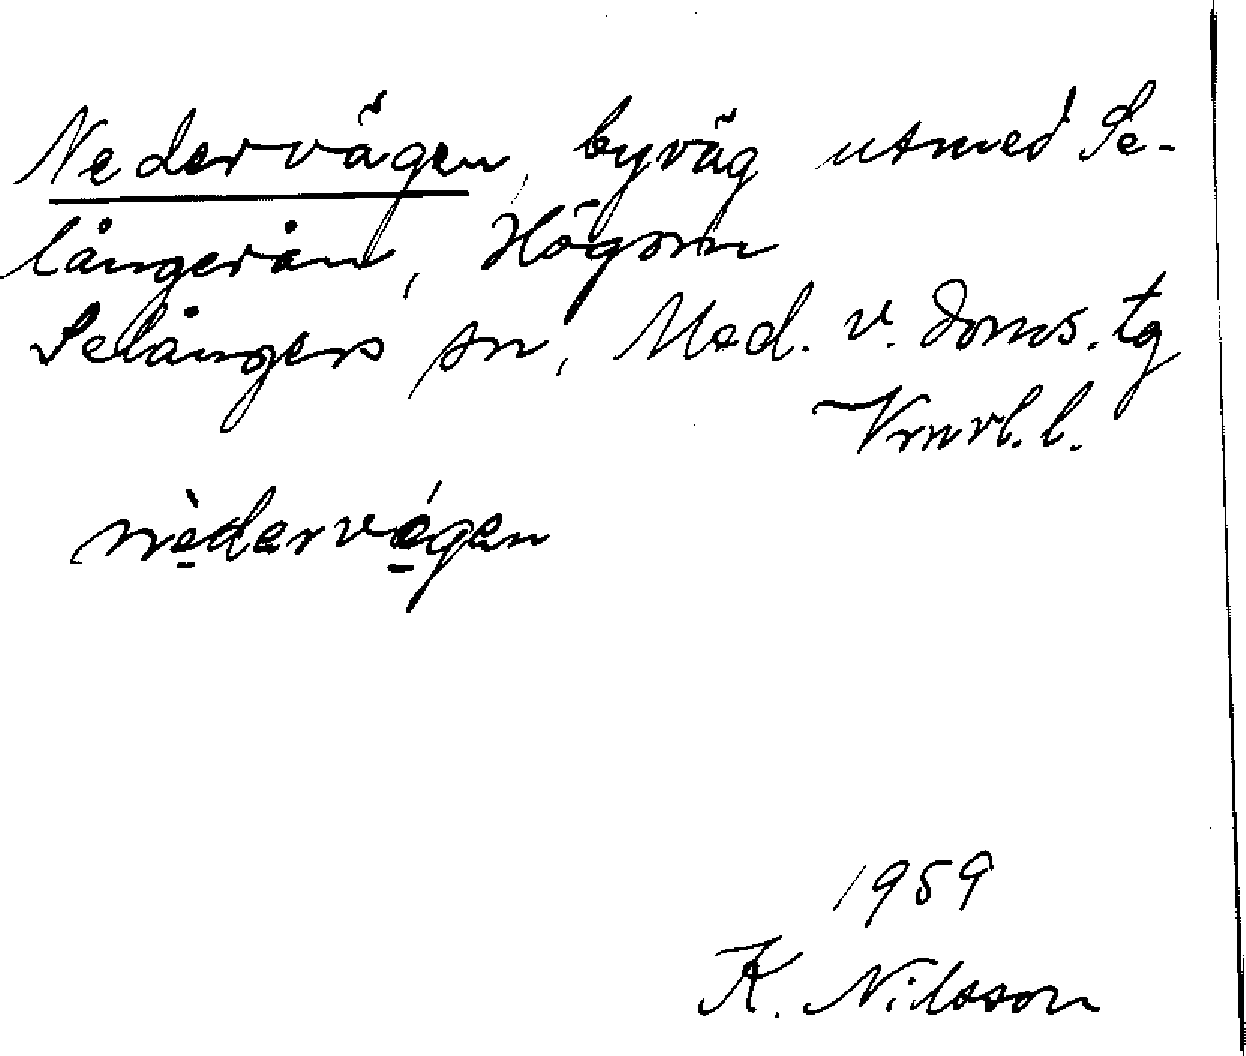 Nedervägen, byväg utmed Se-
långerån, Högom
Selångers sn, Med. v. doms. tg
Vrnrl. l.
nèdervégen
1959
K. Nilsson